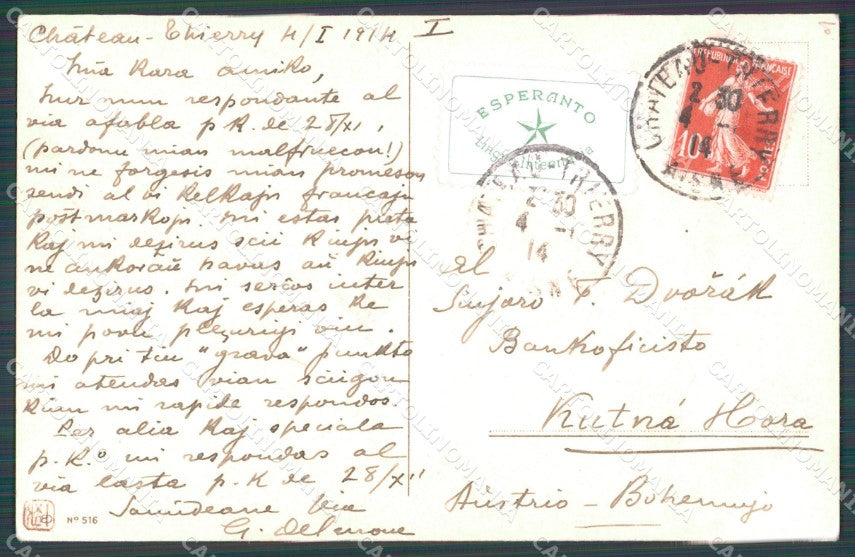 Château-Thierry 4/I 1914 I
Mia Kara amiko,
Mi nun respondante al
via afabla p.K. de 28/XI,
(pardonu mian malfruecon!)
mi ne forgesis mian promeson
sendi al vi kelkajn francajn
postmarkojn. Mi estas preta
kaj mi dezirus scii kiujn vi
ne ankoraŭ havas aŭ kiujn
vi dezirus. Mi serĉos inter
la miaj kaj esperas ke
mi povu plezurigi vin.
Do pri tiu "grava" punkto
mi atendas vian sciigon
kian mi rapide respondos.
Per alia kaj speciala
p.K.o mi respondas al
via lasta p.K de 28/XII
Samideane Via
G. Delanoue
Nº 516
ESPERANTO
Lingvo Internacia
CHATEAU-THIERRY
2 30
4 -1
14
AISNE
REPUBLIQUE FRANÇAISE
10
CHATEAU-THIERRY
2 30
4 -1
14
Al
Sinjoro F. Dvořák
Bankoficisto
Kutná Hora
Aŭstrio - Bohemujo
CARTOLINOMANIA